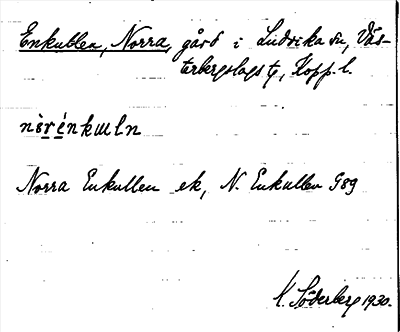 Enkullen, Norra, gård i Ludvika sn, Väs-
terbergslags tg, Kopp. l.
nè̱ŗénkɯln
Norra Enkullen ek, N. Enkullen G89
K. Söderberg 1930.